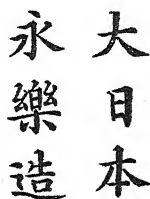 大日本
永樂造